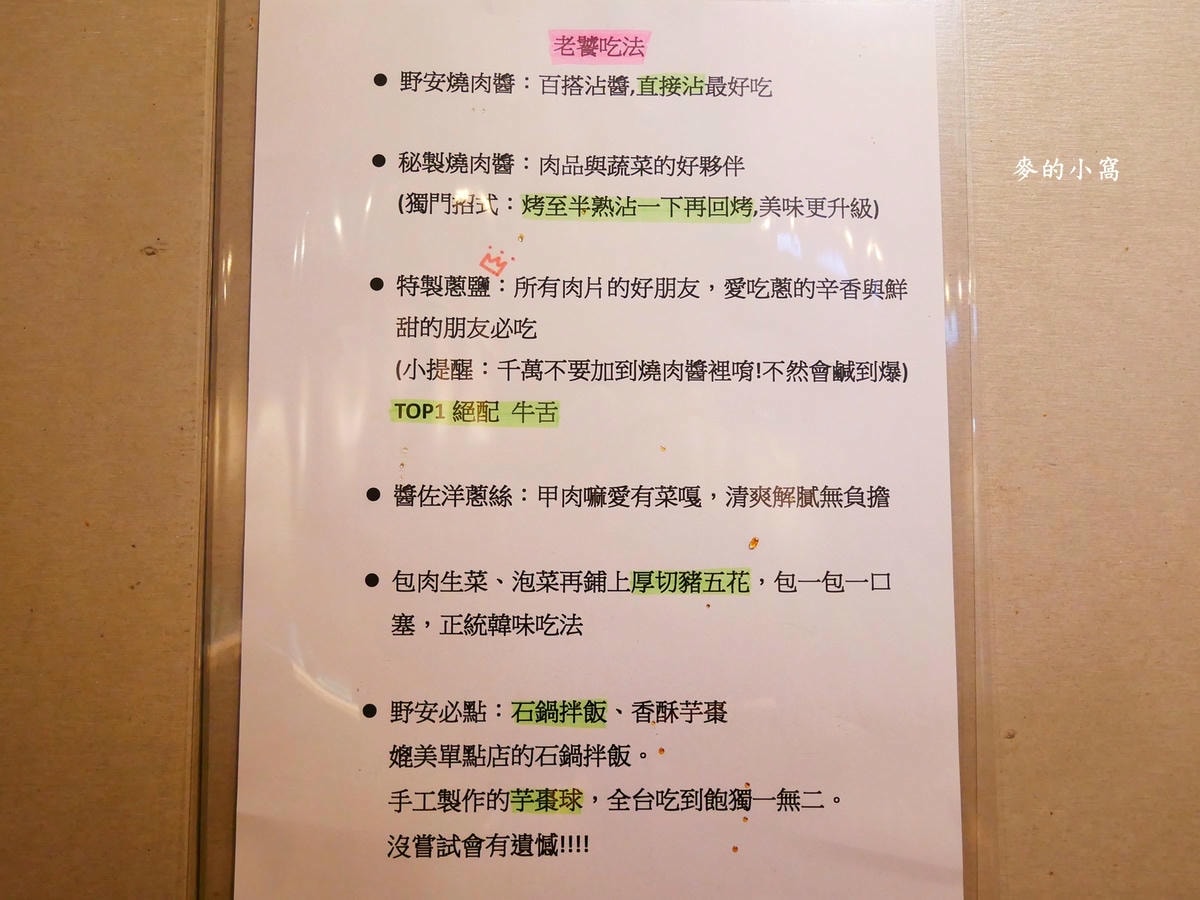 老饕吃法
● 野安燒肉醬：百搭沾醬,直接沾最好吃
● 秘製燒肉醬：肉品與蔬菜的好夥伴
(獨門招式：烤至半熟沾一下再回烤,美味更升級)
● 特製蔥鹽：所有肉片的好朋友，愛吃蔥的辛香與鮮
甜的朋友必吃
(小提醒：千萬不要加到燒肉醬裡唷!不然會鹹到爆)
TOP1 絕配 牛舌
● 醬佐洋蔥絲：甲肉嘛愛有菜嘎，清爽解膩無負擔
● 包肉生菜、泡菜再鋪上厚切豬五花，包一包一口
塞，正統韓味吃法
● 野安必點：石鍋拌飯、香酥芋棗
媲美單點店的石鍋拌飯。
手工製作的芋棗球，全台吃到飽獨一無二。
沒嘗試會有遺憾!!!!
麥的小窩